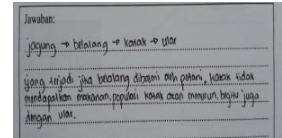 Jawaban:
jagung → belalang → katak → ular
yang terjadi jika belalang dibasmi oleh petani, katak tidak
mendapatkan makanan, populasi katak akan menurun, begitu juga
dengan ular.